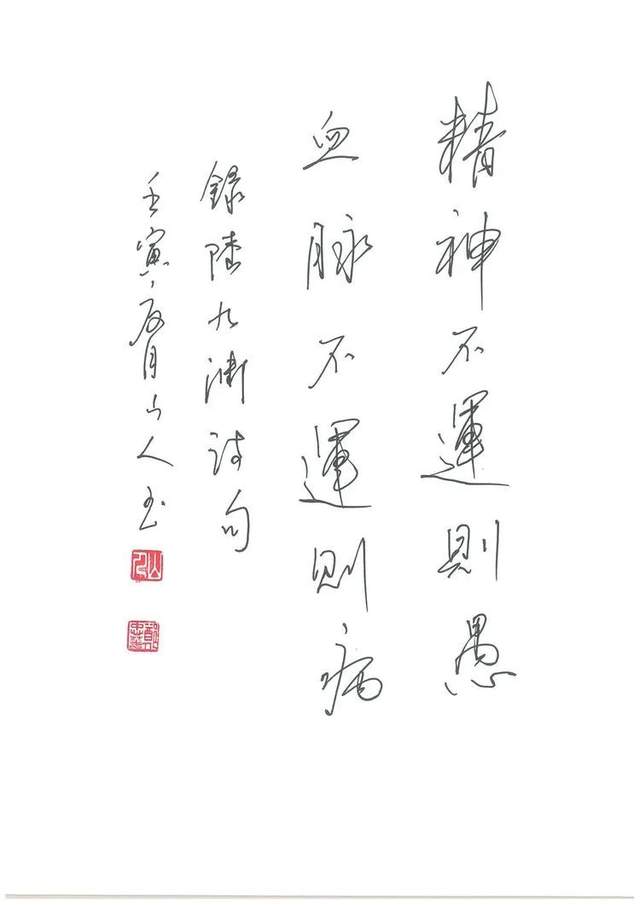 精神不運則愚
血脉不運則病
錄陸九淵詩句
壬寅辰月山人书
山人